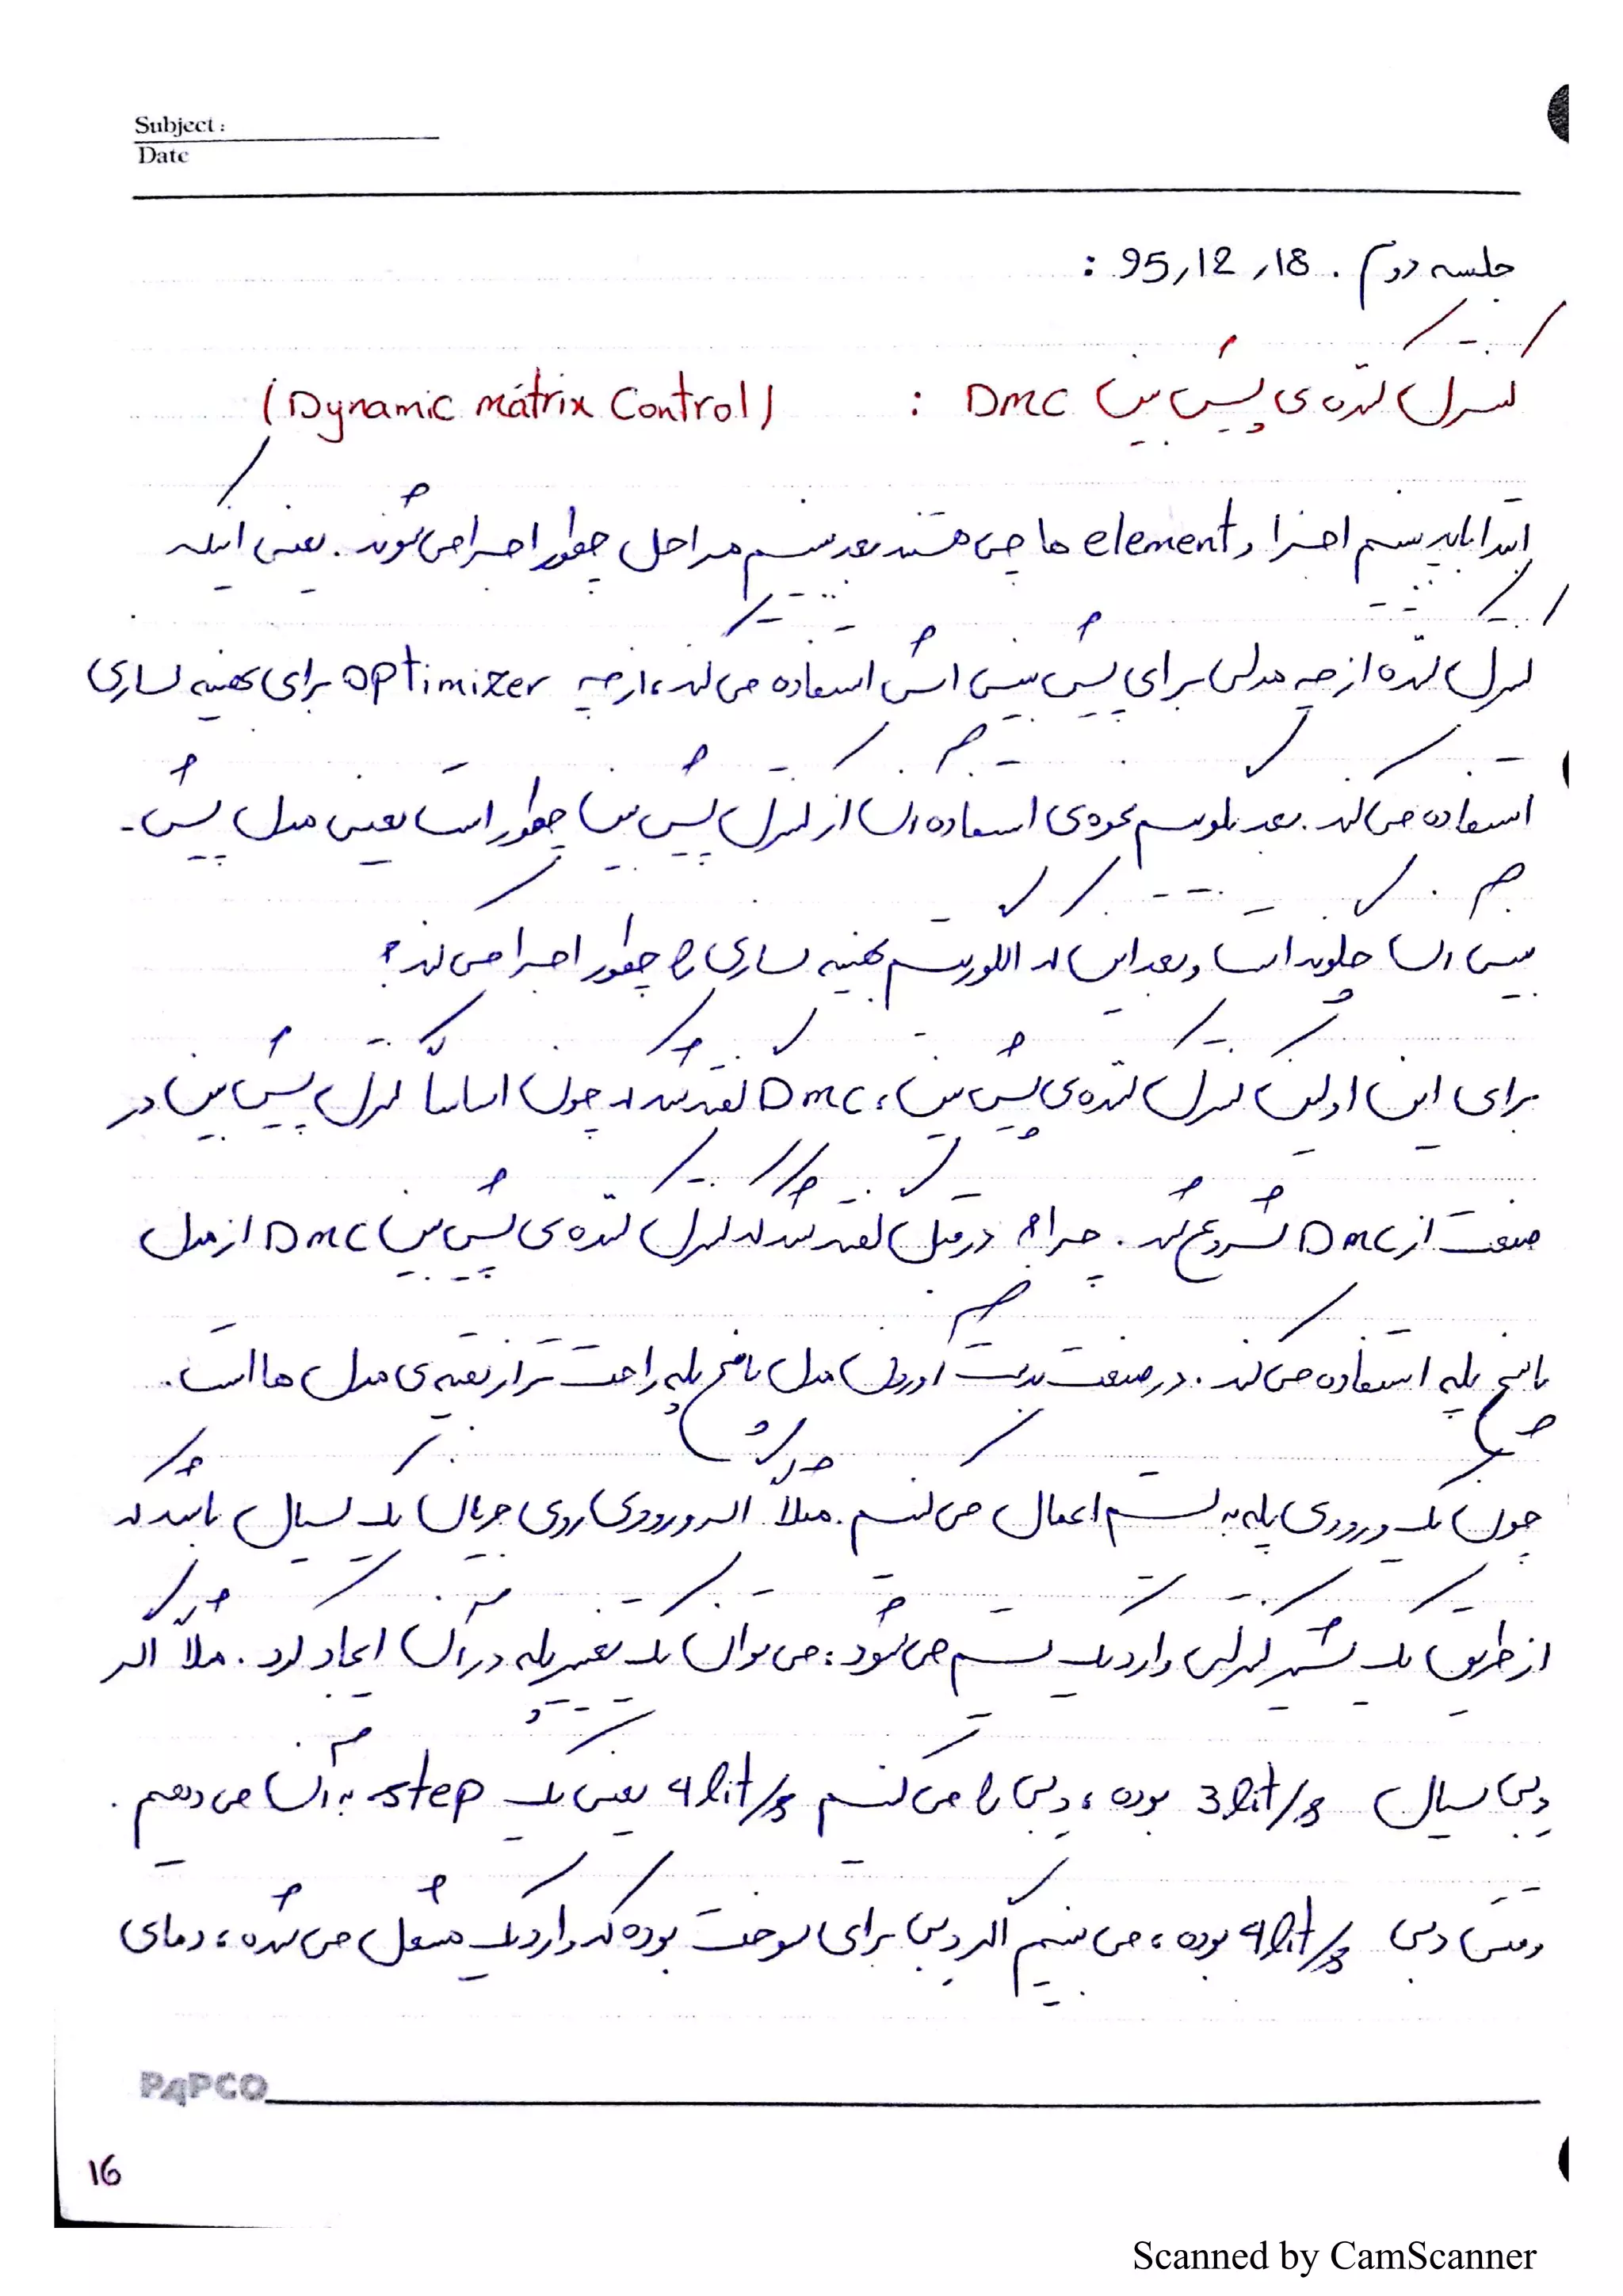 Subject:
Date
جلسه دوم . 95,12,18 :
کنترل کننده ی پیش بین DMC : (Dynamic matrix Control)
ابتدا باید ببینیم اجزا و element ها چی هستند بعد ببینیم مراحل چطور اجرا می شوند. یعنی اینکه
کنترل کننده از چه مدلی برای پیش بینی اش استفاده می کند، از چه optimizer برای بهینه سازی
استفاده می کند. بعد بگوییم نحوه ی استفاده آن از کنترل پیش بین چطور است یعنی مدل پیش-
بینی آن چگونه است و بعد این که الگوریتم بهینه سازی را چطور اجرا می کند؟
برای این اولین کنترل کننده ی پیش بین، DMC گفته شد که چون اساساً کنترل پیش بین در
صنعت از DMC شروع شد. چرا؟ در قبل گفته شد که کنترل کننده ی پیش بین DMC از مدل
پاسخ پله استفاده می کند. در صنعت بدست آوردن مدل پاسخ پله راحت تر از بقیه ی مدل ها است.
چون یک ورودی پله به سیستم اعمال می کنیم. مثلاً اگر ورودی روی جریان یک سیال باشد که
از طریق یک شیر کنترلی وارد یک سیستم می شود، می توان یک تغییر پله در آن ایجاد کرد. مثلاً اگر
دبی سیال 3 lit/s بوده، دبی را می کنیم 4 lit/s یعنی یک step به آن می دهیم.
وقتی دبی 4 lit/s بوده، می بینیم اگر دبی برای سوخت بوده که وارد یک مشعل می شده، دمای
PAPCO
16
Scanned by CamScanner